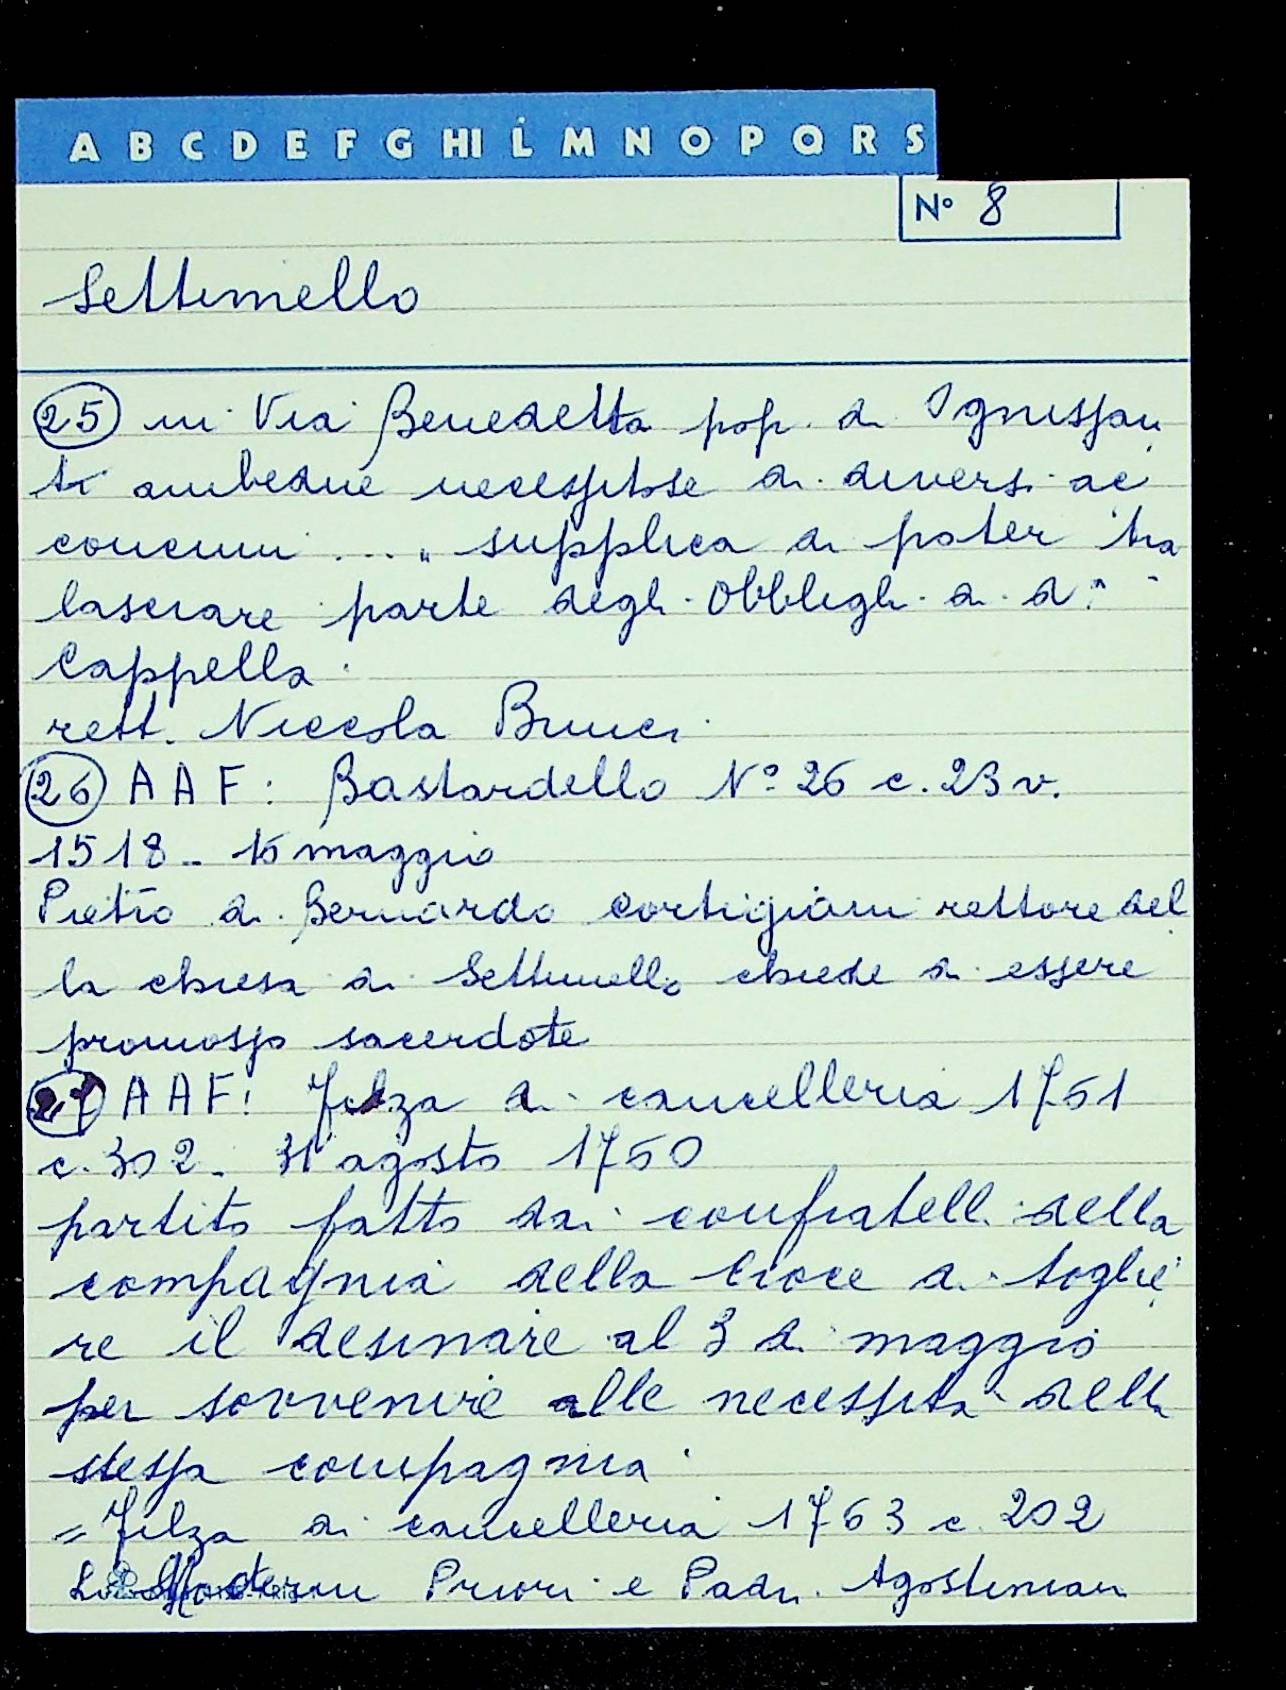 A B C D E F G HI L M N O P Q R S
Nº 8
Settimello
25 in Via Benedetta pop. di Ognissan
ti ambedue necessitose di diversi ac
concimi .... " supplica di poter tra
lasciare parte degli Obblighi di d.ª
Cappella.
rett. Niccola Bunci
26 AAF: Bastardello Nº 26 c. 23 v.
1518 - 15 maggio
Pietro di Bernardo Cortigiani rettore del
la chiesa di Settimello chiede di essere
promosso sacerdote
27 AAF: Filza di cancelleria 1761
c. 302. 31 agosto 1760
partito fatto dai confratelli della
compagnia della Croce di toglie
re il desinare al 3 di maggio
per sovvenire alle necessità della
stessa compagnia
= Filza di cancelleria 1763 c. 202
Moderni Priori e Padri Agostiniani